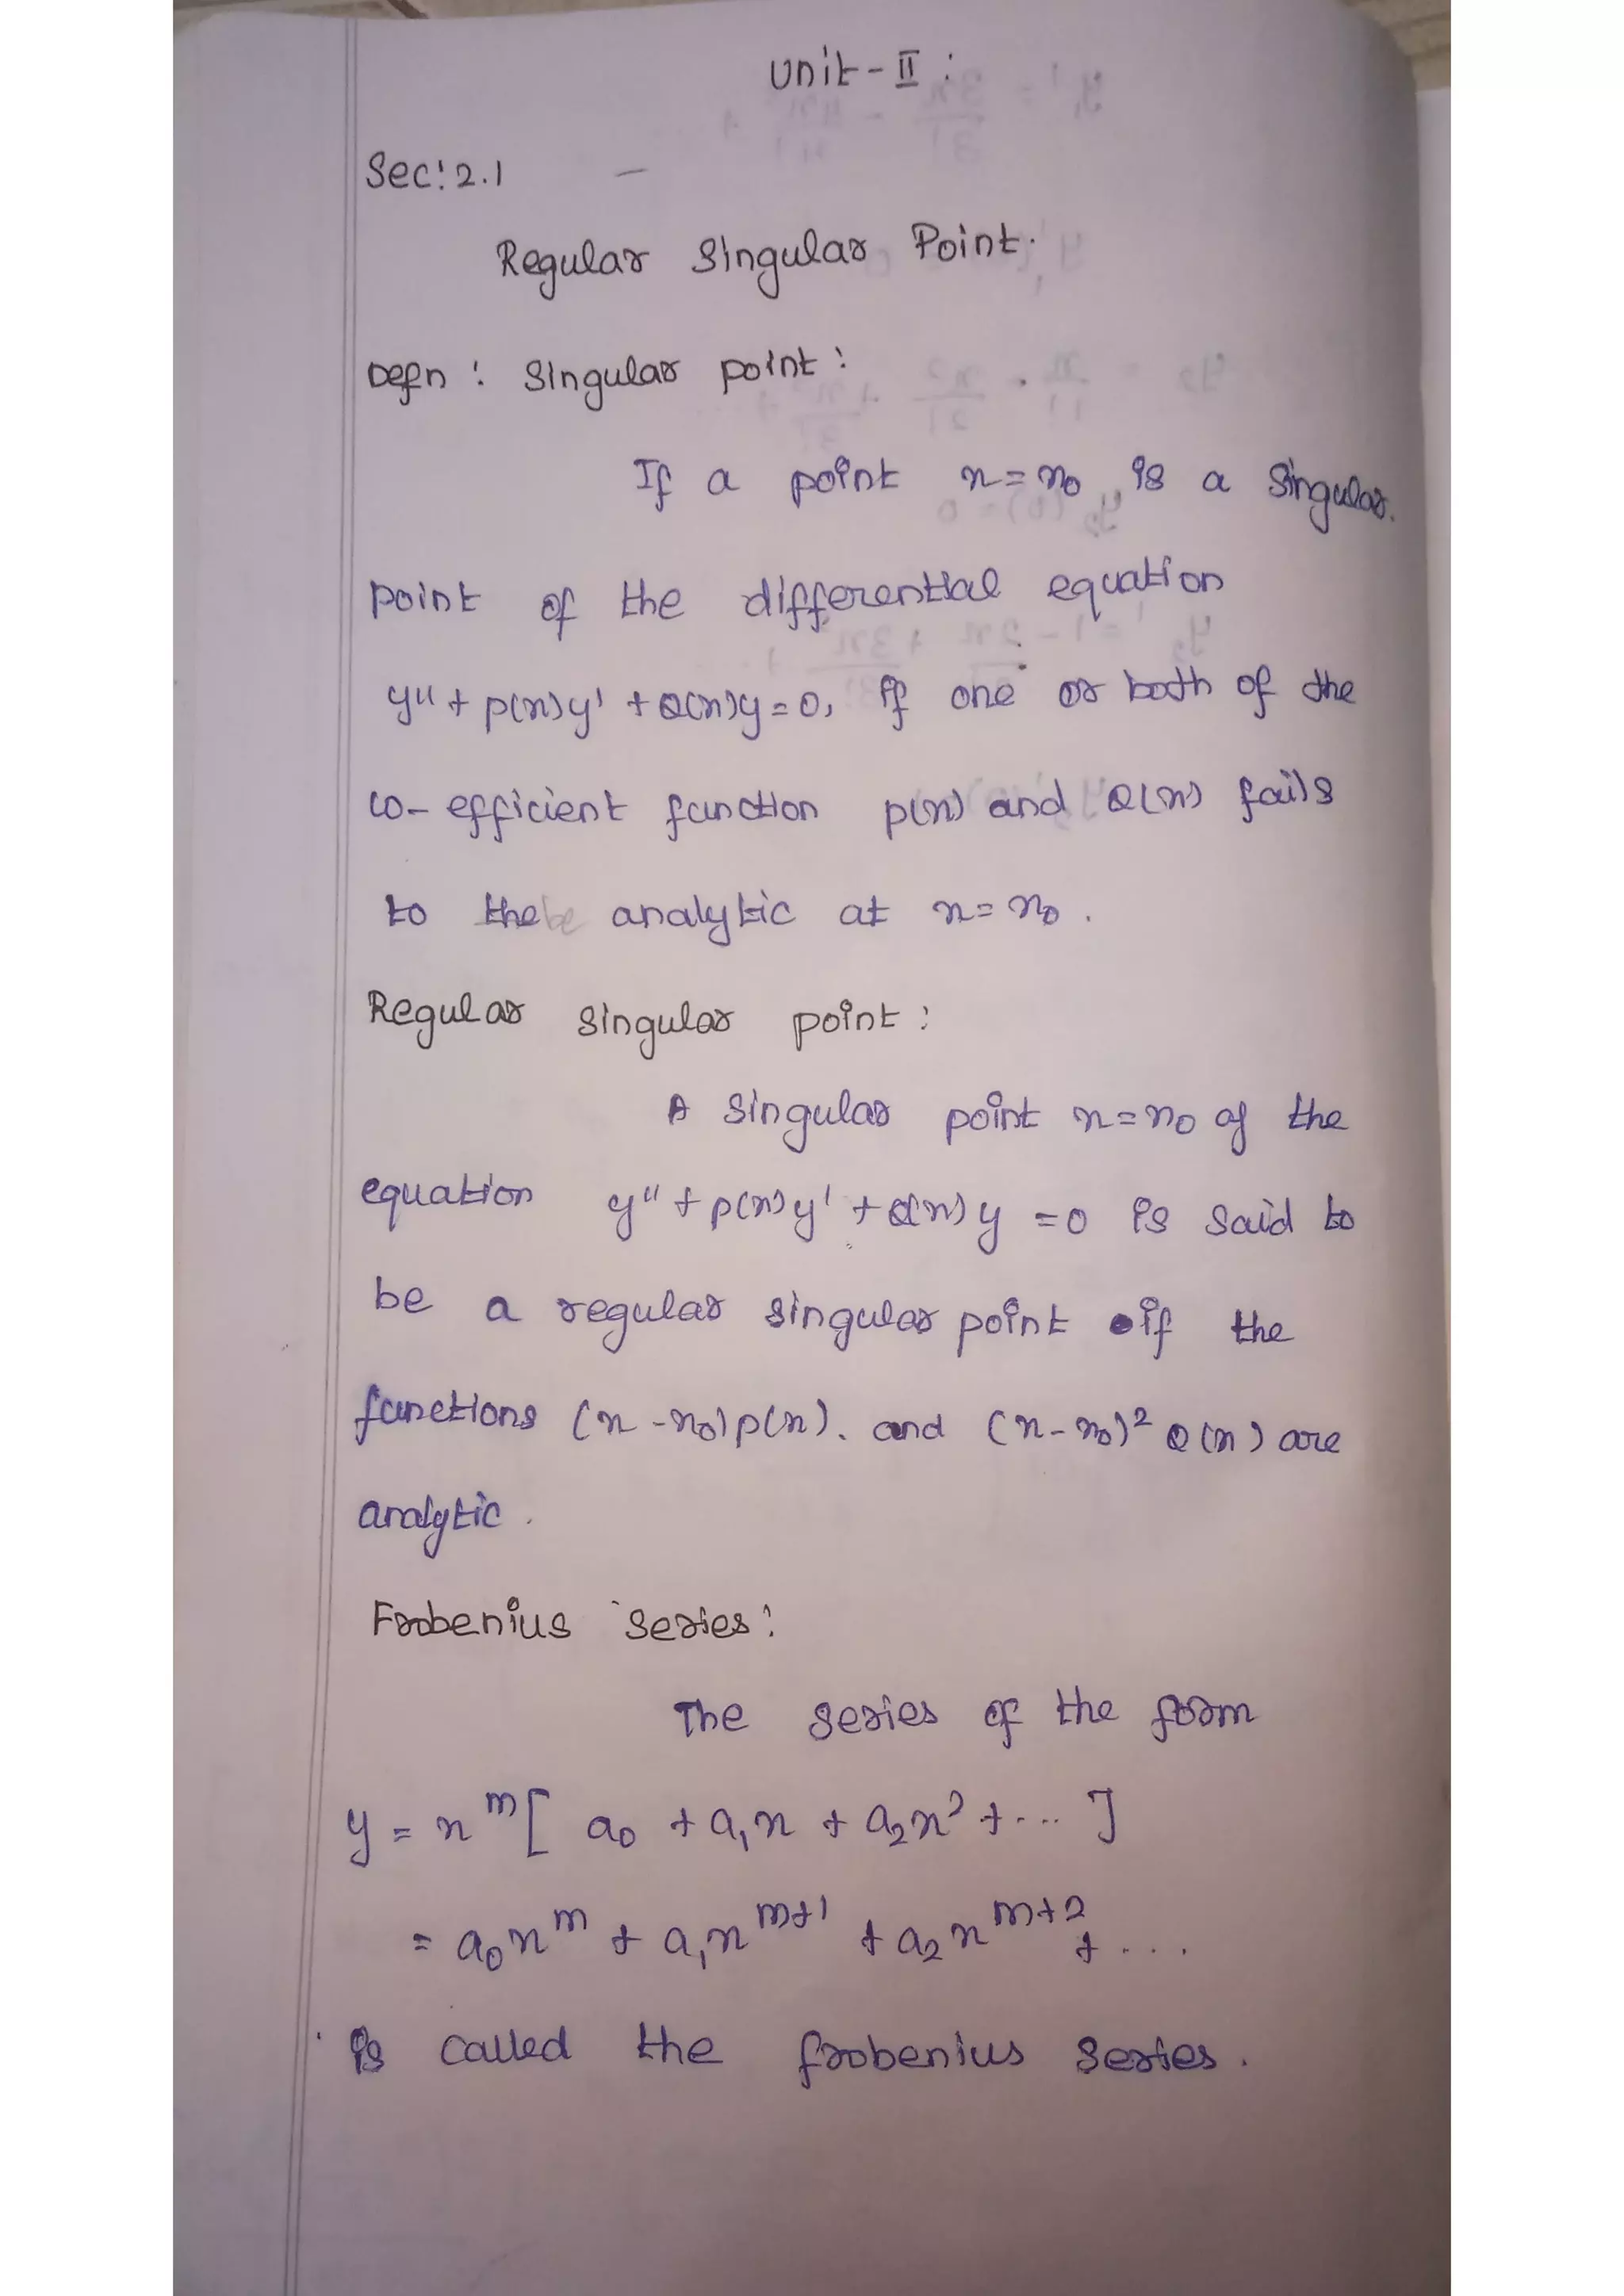 Unit - II :
Sec: 2.1
Regular Singular Point.
Defn : Singular point :
If a point x = x₀ is a Singular
point of the differential equation
y'' + p(x)y' + Q(x)y = 0, if one or both of the
co-efficient function p(x) and Q(x) fails
to the be analytic at x = x₀.
Regular singular point :
A singular point x = x₀ of the
equation y'' + p(x)y' + Q(x)y = 0 is said to
be a regular singular point if the
functions (x - x₀)p(x). and (x - x₀)² Q(x) are
analytic.
Frobenius series :
The series of the form
y = x^m [ a₀ + a₁x + a₂x² + ... ]
= a₀x^m + a₁x^m+1 + a₂x^m+2 + ...
is called the frobenius series.